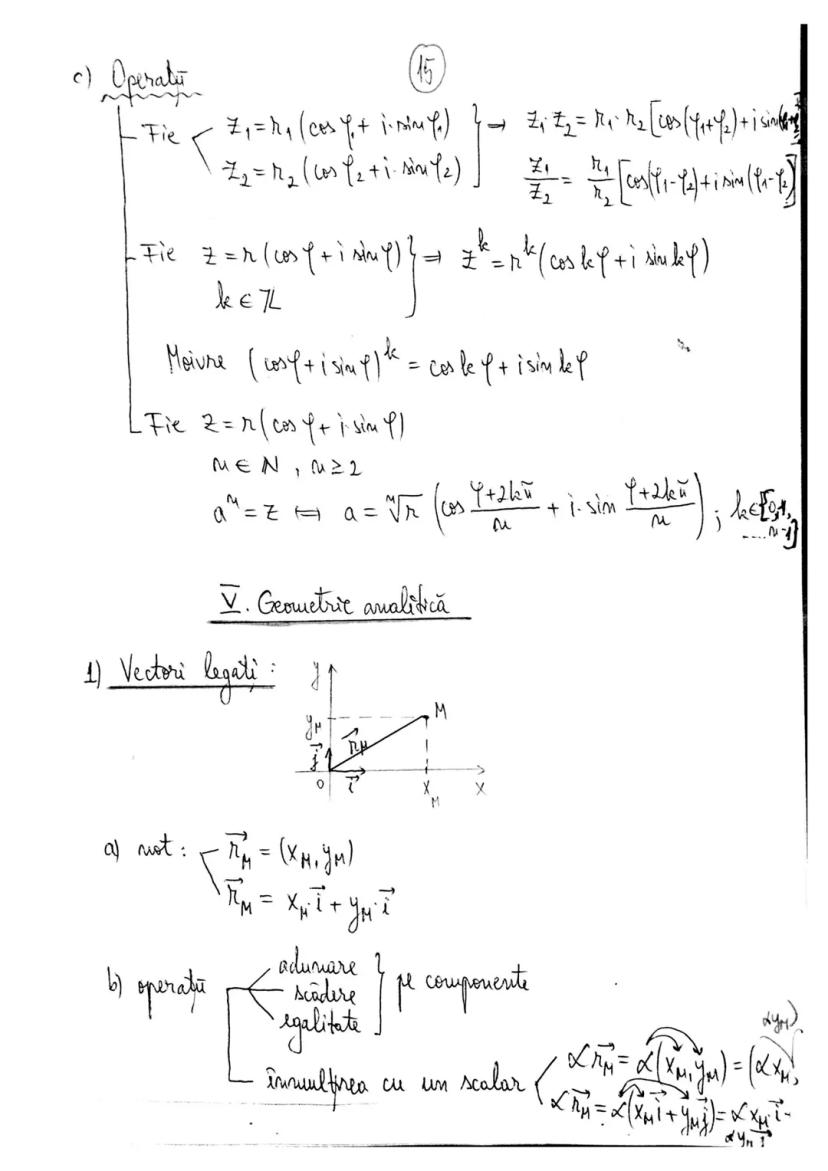 15
c) Operații
Fie z₁ = r₁ (cos φ₁ + i·sin φ₁)
z₂ = r₂ (cos φ₂ + i·sin φ₂) } ⇒ z₁·z₂ = r₁·r₂ [cos(φ₁+φ₂) + i sin(φ₁+φ₂)]
z₁/z₂ = r₁/r₂ [cos(φ₁-φ₂) + i sin(φ₁-φ₂)]
Fie z = r (cos φ + i sin φ) } ⇒ z^k = r^k (cos kφ + i sin kφ)
k ∈ ℤ
Moivre (cos φ + i sin φ)^k = cos k φ + i sin k φ
Fie z = r (cos φ + i·sin φ)
n ∈ ℕ, n ≥ 2
a^n = z ⟺ a = ⁿ√r (cos (φ+2kπ)/n + i·sin (φ+2kπ)/n) ; k∈{0,1,
.... n-1}
V. Geometrie analitică
1) Vectori legați :
y
y_M M
j⃗ r⃗_M
O i⃗ x_M x
a) not : r⃗_M = (x_M, y_M)
r⃗_M = x_M·i⃗ + y_M·i⃗
b) operații adunare
scădere } pe componente
egalitate
înmulțirea cu un scalar α r⃗_M = α (x_M, y_M) = (α x_M,
α y_M)
α r⃗_M = α (x_M i⃗ + y_M j⃗) = α x_M·i⃗ -
α y_M j⃗